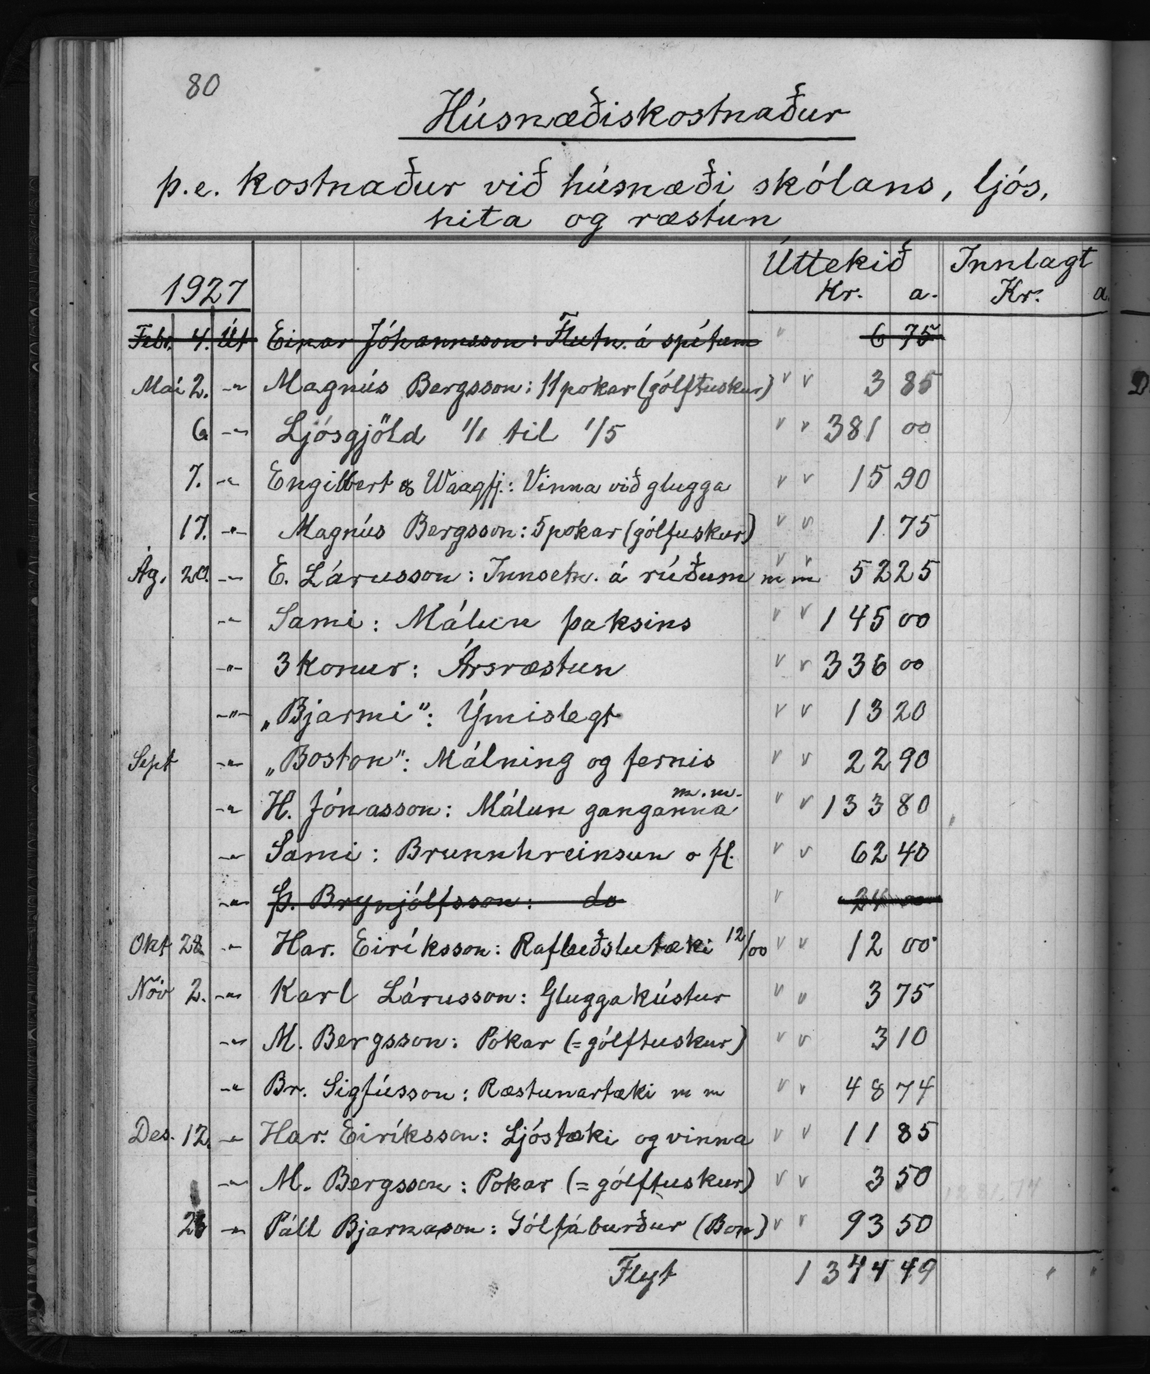 80
Húsnæðiskostnaður
þ.e. kostnaður við húsnæði skólans, ljós,
hita og ræstun
1927 Úttekið Innlagt
Kr. a. Kr. a.
Febr. 4. Út Einar Jóhannsson: Flutn. á spítum " 6 75
Mai 2. -"- Magnús Bergsson: 11 pokar (gólftuskur) v v 3 85
6 -"- Ljósgjöld 1/1 til 1/5 v v 381 00
7. -"- Engilbert & Waagfj.: Vinna við glugga v v 15 90
17. -"- Magnús Bergsson: 5 pokar (gólfuskur) v v 1 75
Ág. 20. -"- E. Lárusson: Innsetn. á rúðum m m v v 52 25
-"- Sami: Málun þaksins v v 145 00
-"- 3 konur: Ársræstun v v 336 00
-"- „Bjarmi“: Ýmislegt v v 13 20
Sept -"- „Boston“: Málning og fernis v v 22 90
-"- H. Jónasson: Málun ganganna m.m. v v 133 80
-"- Sami: Brunnhreinsun o fl. v v 62 40
-"- Þ. Brynjólfsson: do v 24 00
Okt -"- Har. Eiríksson: Rafleiðslutæki 12/00 v v 12 00
Nóv 2. -"- Karl Lárusson: Gluggakústur v v 3 75
-"- M. Bergsson: Pokar (= gólftuskur) v v 3 10
-"- Br. Sigfússon: Ræstunartæki m m v v 48 74
Des. 12. -"- Har. Eiríksson: Ljóstæki og vinna v v 11 85
-"- M. Bergsson: Pokar (= gólftuskur) v v 3 50
-"- Páll Bjarnason: Gólfáburður (Bon) v v 93 50
Flyt 1344 49